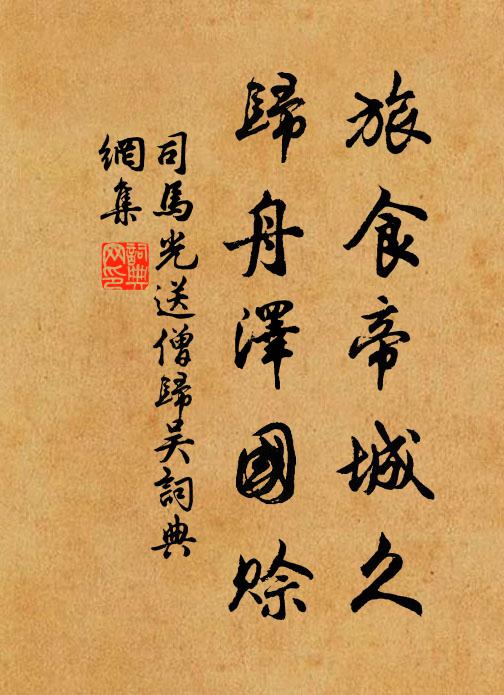 旅食帝城久
歸舟澤國賒
司馬光送僧歸吴詞典
網集
詞典
网印